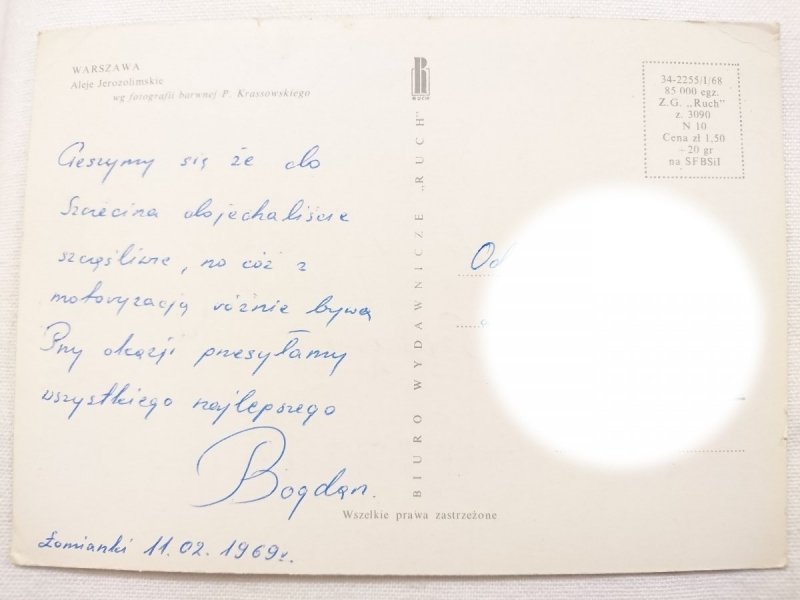 WARSZAWA
Aleje Jerozolimskie
wg fotografii barwnej P. Krassowskiego
Cieszymy się że do
Szczecina dojechaliście
szczęśliwie, no cóż z
motoryzacją różnie bywa
Przy okazji przesyłamy
wszystkiego najlepszego
Bogdan.
Łomianki 11.02.1969r.
RUCH
BIURO WYDAWNICZE „RUCH"
Wszelkie prawa zastrzeżone
34-2255/I/68
85 000 egz.
Z.G. „Ruch"
z. 3090
N 10
Cena zł 1,50
+ 20 gr
na SFBSiI